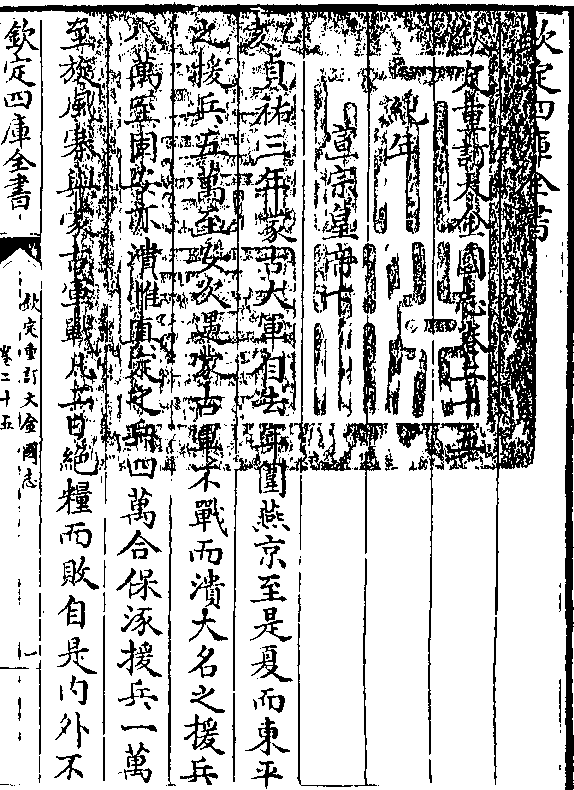 欽定四庫全書
欽定重訂大金國志卷二十五
紀年
宣宗皇帝下
亥貞祐三年蒙古大軍自去年圍燕京至是夏而東平
之援兵五萬至安次遇蒙古軍不戰而潰大名之援兵
八萬至固安亦潰惟真定之兵四萬合保涿援兵一萬
至旋風寨與蒙古軍戰凡日絕糧而敗自是內外不
欽定四庫全書
欽定重訂大金國志
卷二十五
一